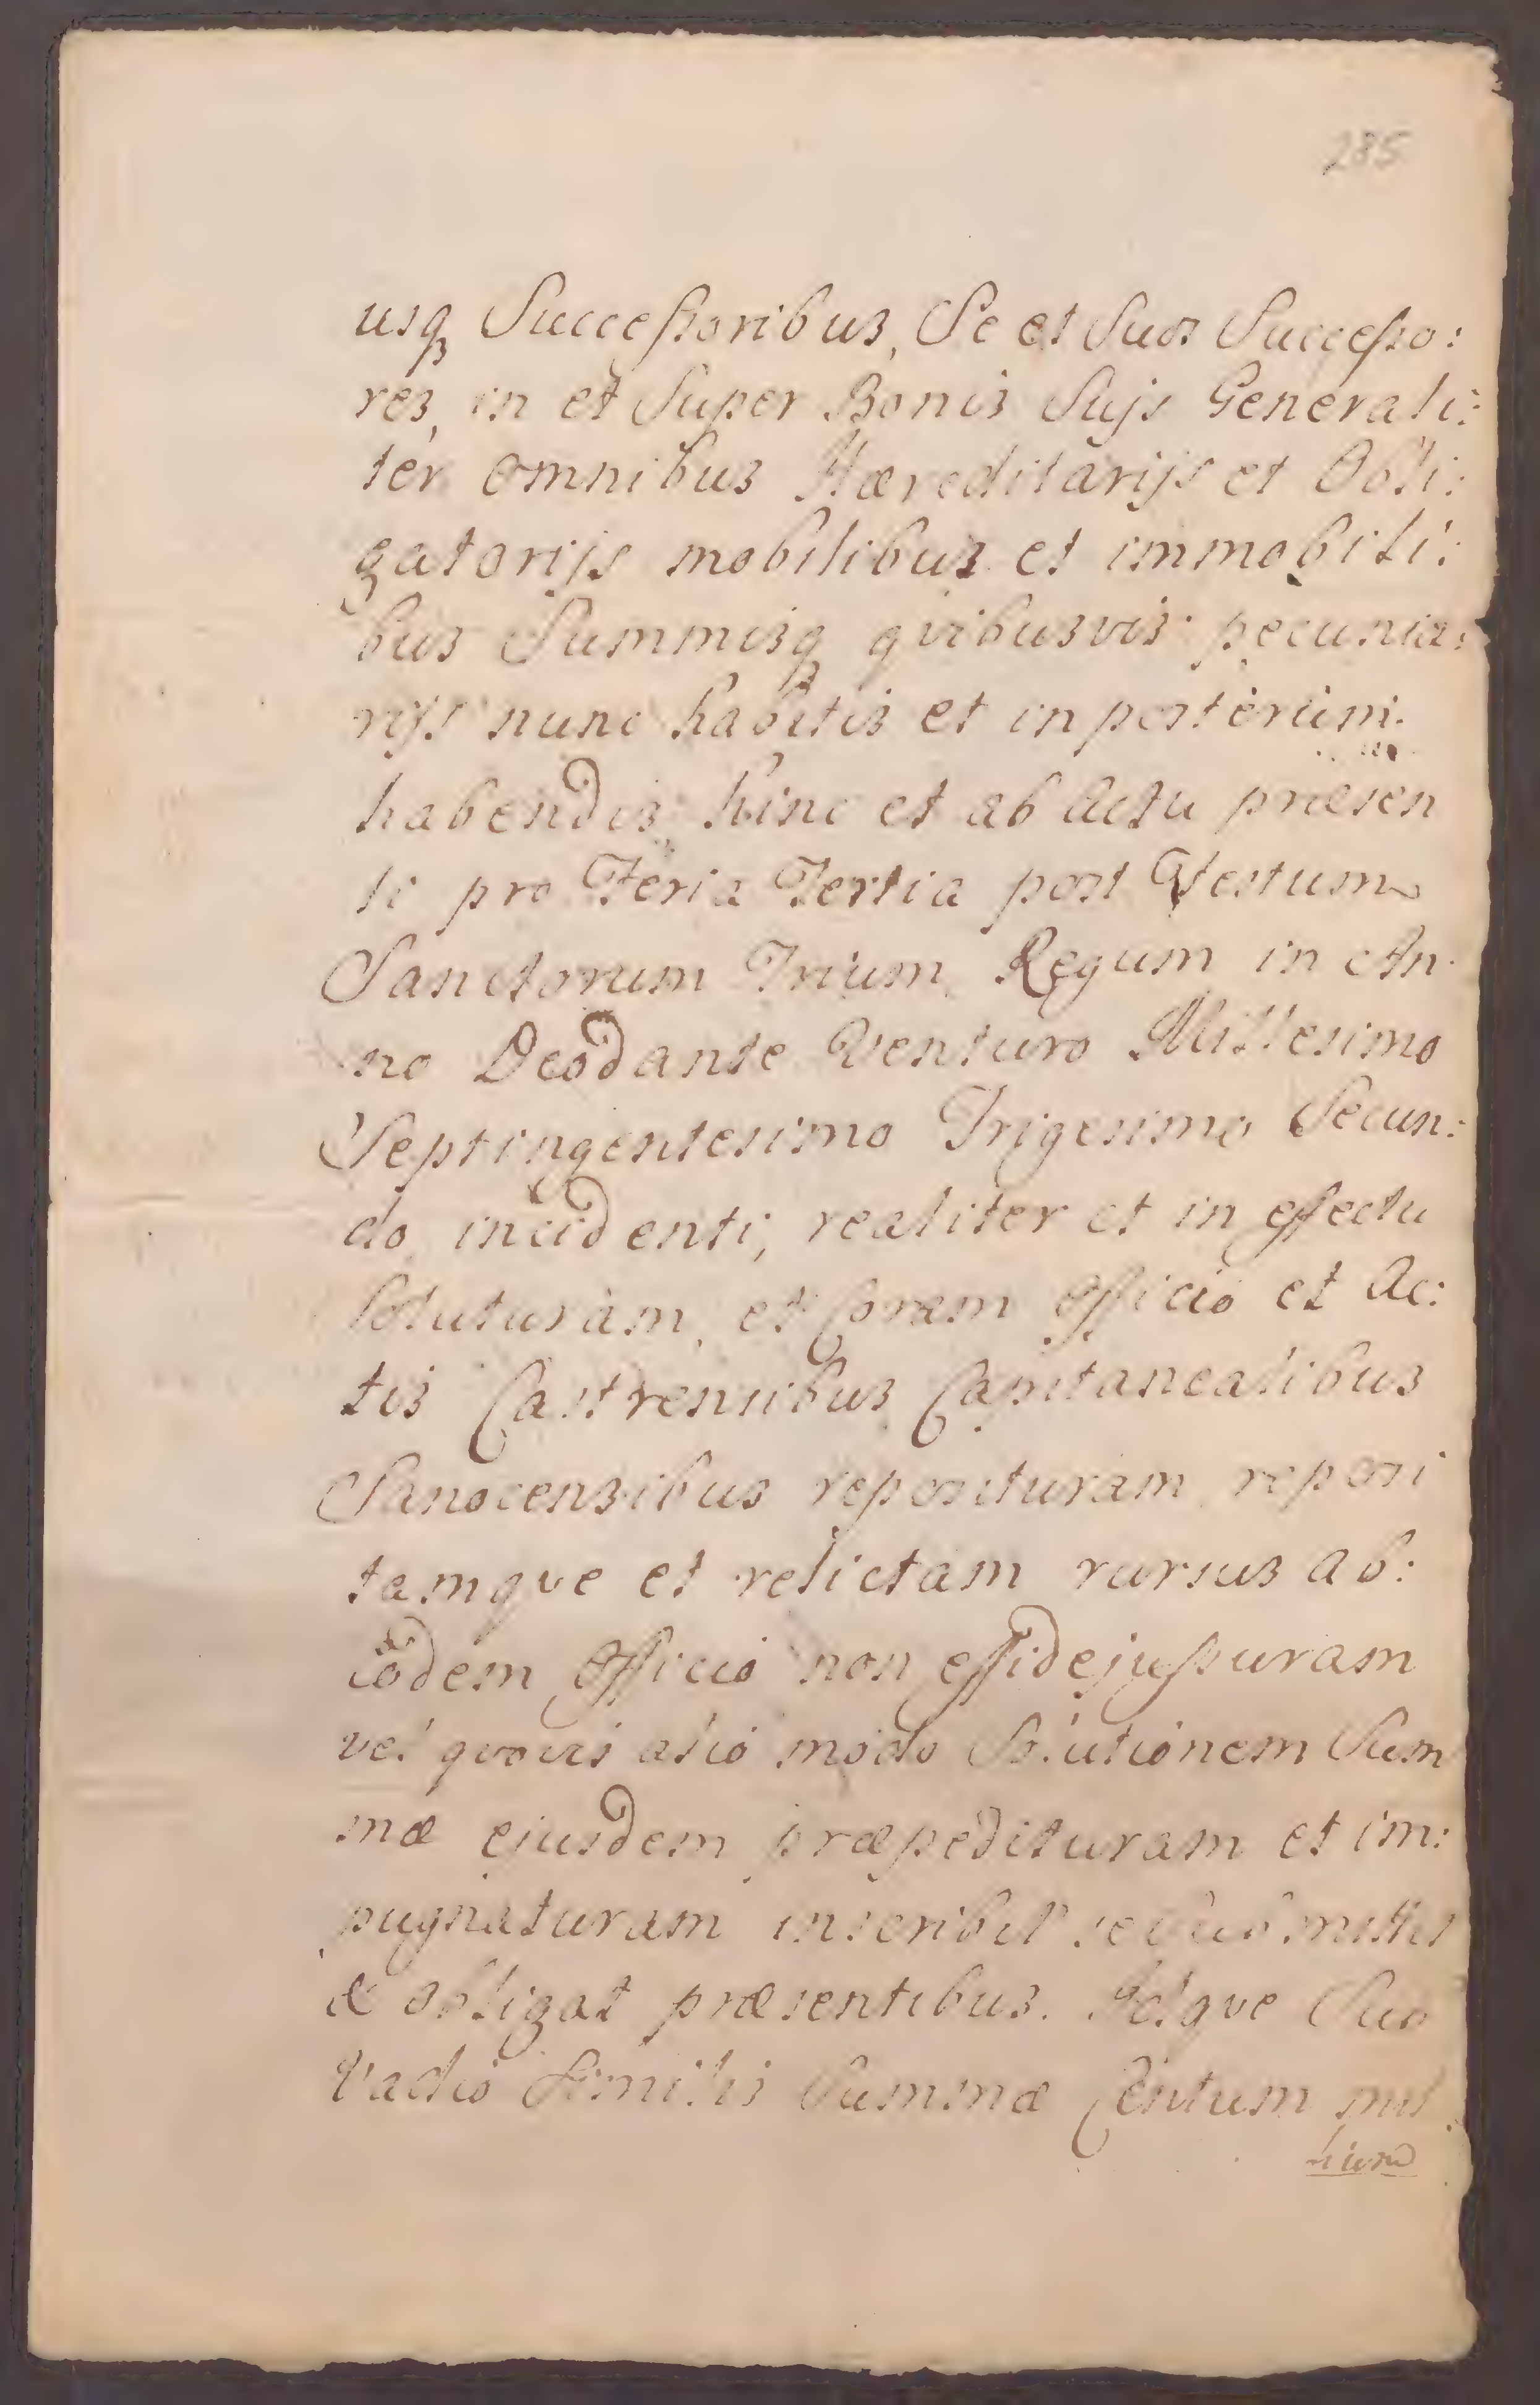 285
usq₃ Successoribus, Se et Suos Successo:
res, in et Super Bonis Suijs Generali:
ter omnibus Hæreditarijs et Obli:
gatorijs mobilibus et immobili:
bus Summisq₃ qvibusvis pecunia:
rijs nunc habitis et in posterum
habendis, hinc et ab actu præsen
ti pro Feria Tertia post Festum
Sanctorum Trium Regum in An
no Deo dante Venturo Millesimo
Septingentesimo Trigesimo Secun:
do incidenti, realiter et in effectu
Soluturam, et coram officio et Ac:
tis Castrensibus Capitanealibus
Sanocensibus reposituram, reposi
tamqve et relictam rursus ab:
eodem officio non effidejussuram
vel qvovis alio modo Solutionem Sum
mæ ejusdem præpedituram et im:
pugnaturam inscribit se submittit
& obligat præsentibus. Idqve Sub
Vadio Similis Summæ Centum mil
lium